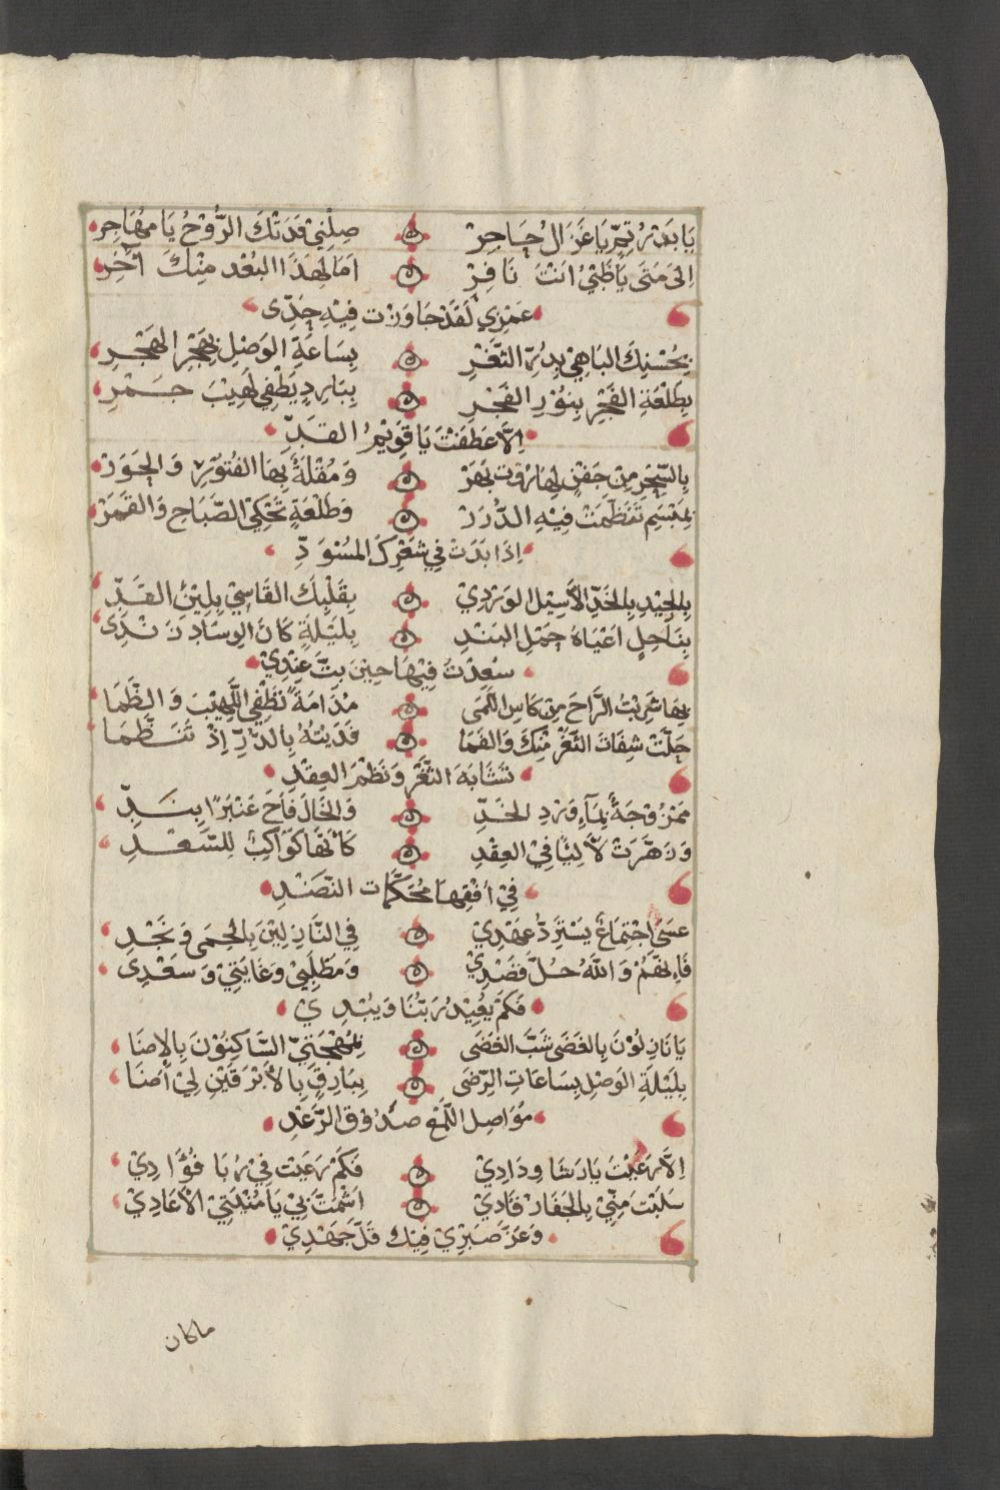 يَا بَدْرُ تِمٍّ يَا غَزَالُ حَاجِرْ صِلْنِي فَدَتْكَ الرُّوْحُ يَا مُهَاجِر
اِلىَ مَتَى يَا ظَبْيُ انْتَ نَافِرْ اَمَا لِهَذَا البُعْدِ مِنْكَ آخِرِ
عَمْرِي لَقَدْ جَاوَزْت فِيْهِ حَدِّى
بِحُسْنِكَ البَاهِيْ بِدُرِّ الثَّغْرِ بِسَاعَةِ الوَصْلِ بِهَجْرِ الهَجْرِ
بِطَلْعَةِ الفَجْرِ بِنُوْرِ الفَجْرِ بِبَارِدٍ يَطْفِي لَهِيْبَ جَمْرِ
اِلاَّ عَطَفْتَ يَا قَوِيْمُ القَدِّ
بِالسِّحْرِ مِنْ جَفْنٍ لِهَارُوت بَهَرْ وَمُقْلَةٌ بِهَا الفُتُوْرُ وَالحَوَرْ
بِمَبْسِمٍ تَنَظَّمَتْ فِيْهِ الدُّرَرْ وَطَلْعَةٍ تَحْكِيْ الصَّبَاحِ وَالقَمَرْ
اِذَا بَدَتْ فِي شَعْرِكَ المُسْوَدِّ
بِالجِيْدِ بِالخَدِّ الأَسِيْلِ الوَرْدِيْ بِقَلْبِكَ القَاسِيْ بِلِيْنِ القَدِّ
بِنَاحِلٍ اَعْيَاهُ حَمْلِ البَنْدِ بِلَيْلَةٍ كَانَ الوِسَادَ زَنْدِى
سَعِدْتُ فِيْهَا حِيْنَ بِتَّ عِنْدِيْ
بِهَا شَرِبْتُ الرَّاحَ مِنْ كَاسِ اللَّمَى مُدَامَةً تَطْفِي اللَّهِيْبَ وَالظَّمَا
حَلَّتْ شِفَاتَ الثَّغْرِ مِنْكَ وَالفَمَا فَدَيْتُهُ بِالدُّرِّ اِذْ تَنَظَّمَا
تَشَابَهَ الثَّغْرُ وَنَظْمَ العِقْدِ
مَمْزُوْجَةً بِمَآءِ وَرْدِ الخَدِّ وَالخَالُ فَاحَ عَنْبَرًا بِنَدِّ
وَزَهَّرَتْ لَآلِئًا فِيْ العِقْدِ كَأَنَّهَا كَوَاكِبٌ لِلسَّعْدِ
فِيْ اُفْقِهَا مُحَكَّمَات النَّضَدِ
عَسَى اِجْتِمَاعٌ يَسْتَرِدُّ عَهْدِيْ فِي النَّازِلِيْنَ بِالحِمَى وَنَجْدِ
فَاِنَّهُمْ وَاللّٰهِ حُلَّ قَصْدِيْ وَمَطْلَبِيْ وَغَايَتِيْ وَسَعْدِى
فَكَمْ يُعِيْدُ رَبُّنَا وَيُبْدِي
يَا نَازِلُوْنَ بِالغَضَى شَبَّ الغَضَى بِمُهْجَتِيْ السَّاكِنُوْنَ بِالاِضَا
بِلَيْلَةِ الوَصْلِ بِسَاعَاتِ الرِّضَى بِبَارِقٍ بِالأَبْرَقَيْنِ لِيْ اَضَا
مُوَاصِلِ اللَّمْعِ صَدُوْقِ الرَّعْدِ
اِلاَّ رَعَيْتَ يَا رَشَا وِدَادِيْ فَكَمْ رَعَيْت فِيْ رُبَا فُؤَادِيْ
سَلَبْتَ مِنِّيْ بِالجَفَا رُقَادِيْ اَشْمَتَّ بِيْ يَا مُنْيَتِيْ الأَعَادِيْ
وَعَزَّ صَبْرِيْ فِيْك قَلَّ جَهْدِيْ
ماكان